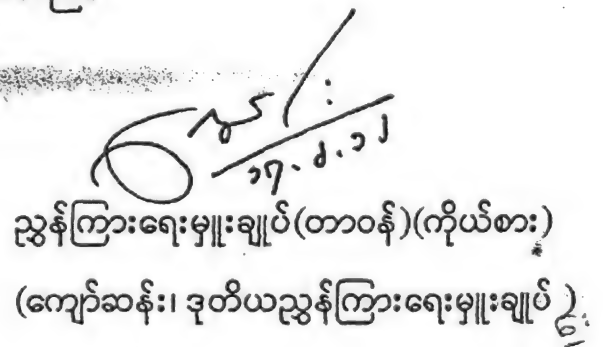 ၁၇.၆.၁၂
ညွှန်ကြားရေးမှူးချုပ်(တာဝန်)(ကိုယ်စား)
(ကျော်ဆန်း၊ ဒုတိယညွှန်ကြားရေးမှူးချုပ် )